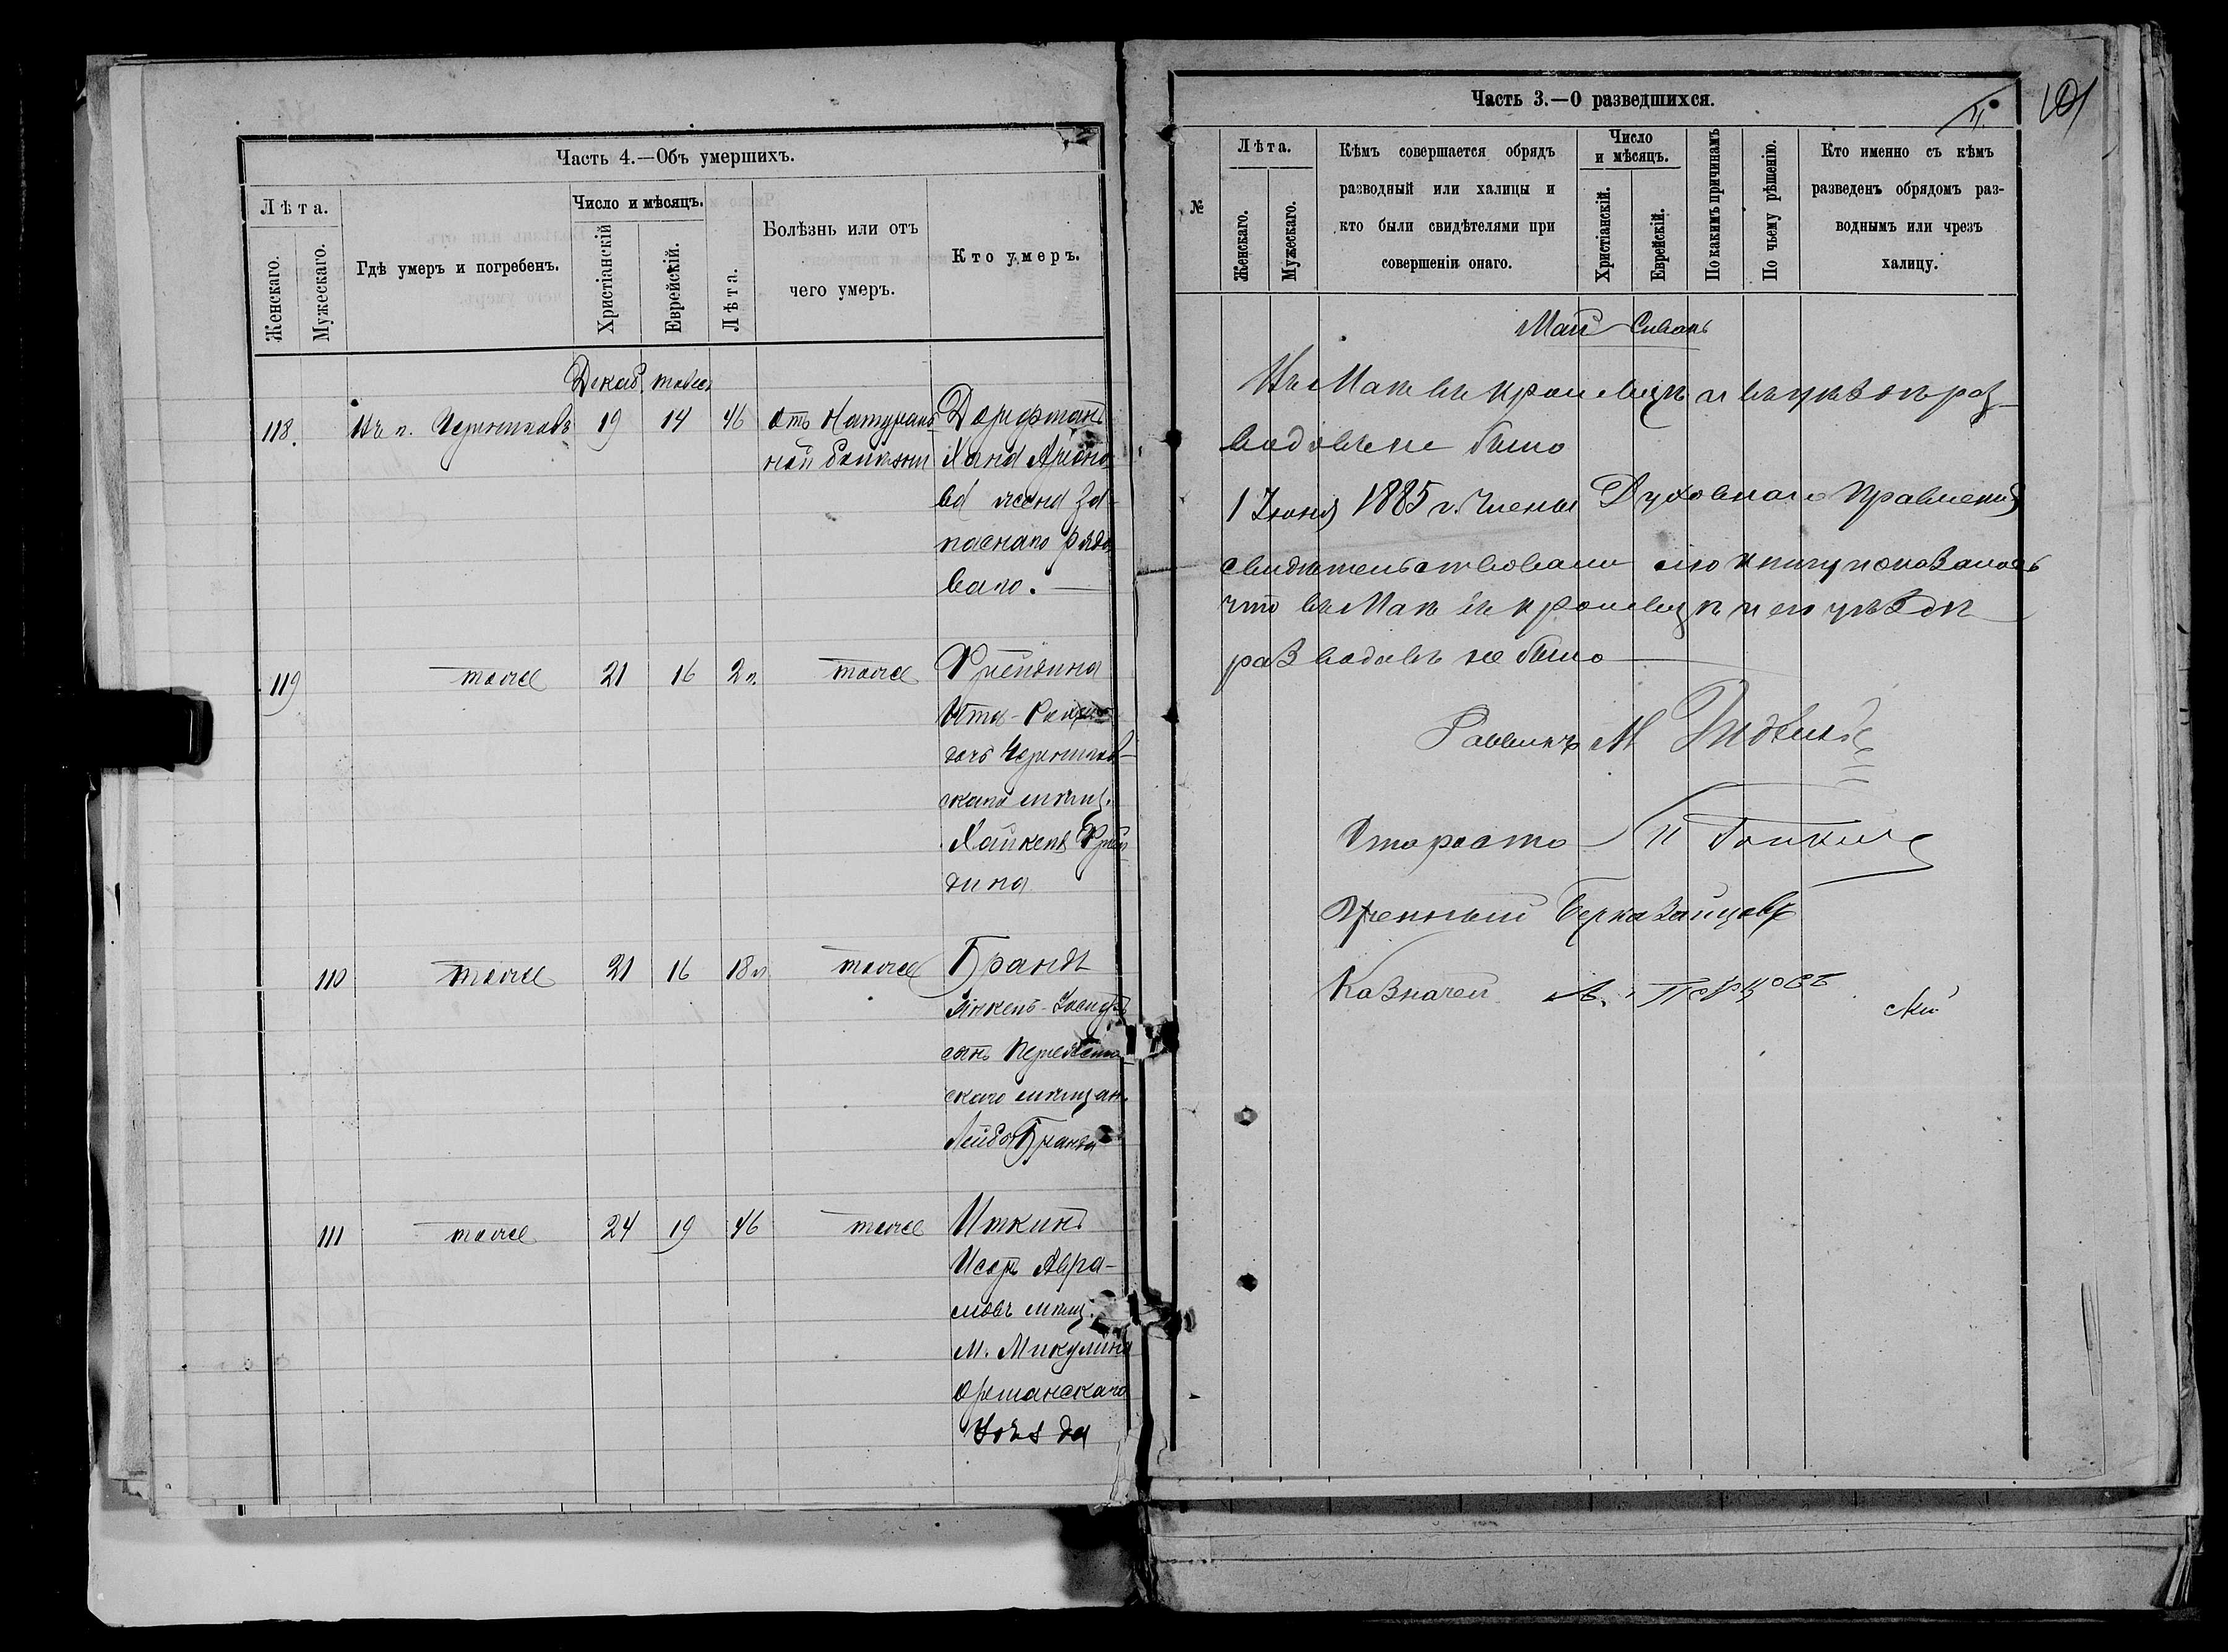 Часть 4.—Объ умершихъ.
Лѣта.
Женскаго.
Мужескаго.
Гдѣ умеръ и погребенъ.
Число и мѣсяцъ.
Христіанскій
Еврейскій.
Лѣта.
Болѣзнь или отъ
чего умеръ.
Кто умеръ.
Декаб. тевес
118. Въ г. Черниговѣ 19 14 46 отъ Натураль Дорфманъ
ной болѣзни Хана Аронова
ва жена За-
паснаго рядо
ваго.
119 тоже 21 16 2 г. тоже Фрейдина
Ита-
дочь Чернигов-
скаго мѣщ.
Хайкеля Фрей
дина
110 тоже 21 16 18 л тоже Брандъ
Янкель-
сынъ
скаго мѣщан.
Лейбы Бранда
111 тоже 24 19 46 тоже Иткинъ
Исаръ Авра-
мовъ мѣщ.
м. Микулина
Оршанскаго
уѣзда
Часть 3.—О разведшихся.
101
№
Лѣта.
Женскаго.
Мужескаго.
Кѣмъ совершается обрядъ
разводный или халицы и
кто были свидѣтелями при
совершеніи онаго.
Число
и мѣсяцъ.
Христіанскій.
Еврейскій.
По какимъ причинамъ
По чьему рѣшенію.
Кто именно съ кѣмъ
разведенъ обрядомъ раз-
воднымъ или чрезъ
халицу.
Май Сивонъ
Въ Маѣ въ и въ уѣздѣ раз-
водовъ не было
1 Іюня 1885 г. Члены Духовнаго Правленія
свидѣтельствовали сію книгу показалось
что въ Маѣ въ и его уѣздѣ
разводовъ не было
Раввинъ М
Староста
Ученый Берка Зайцевъ
Казначей Л. Перцовъ